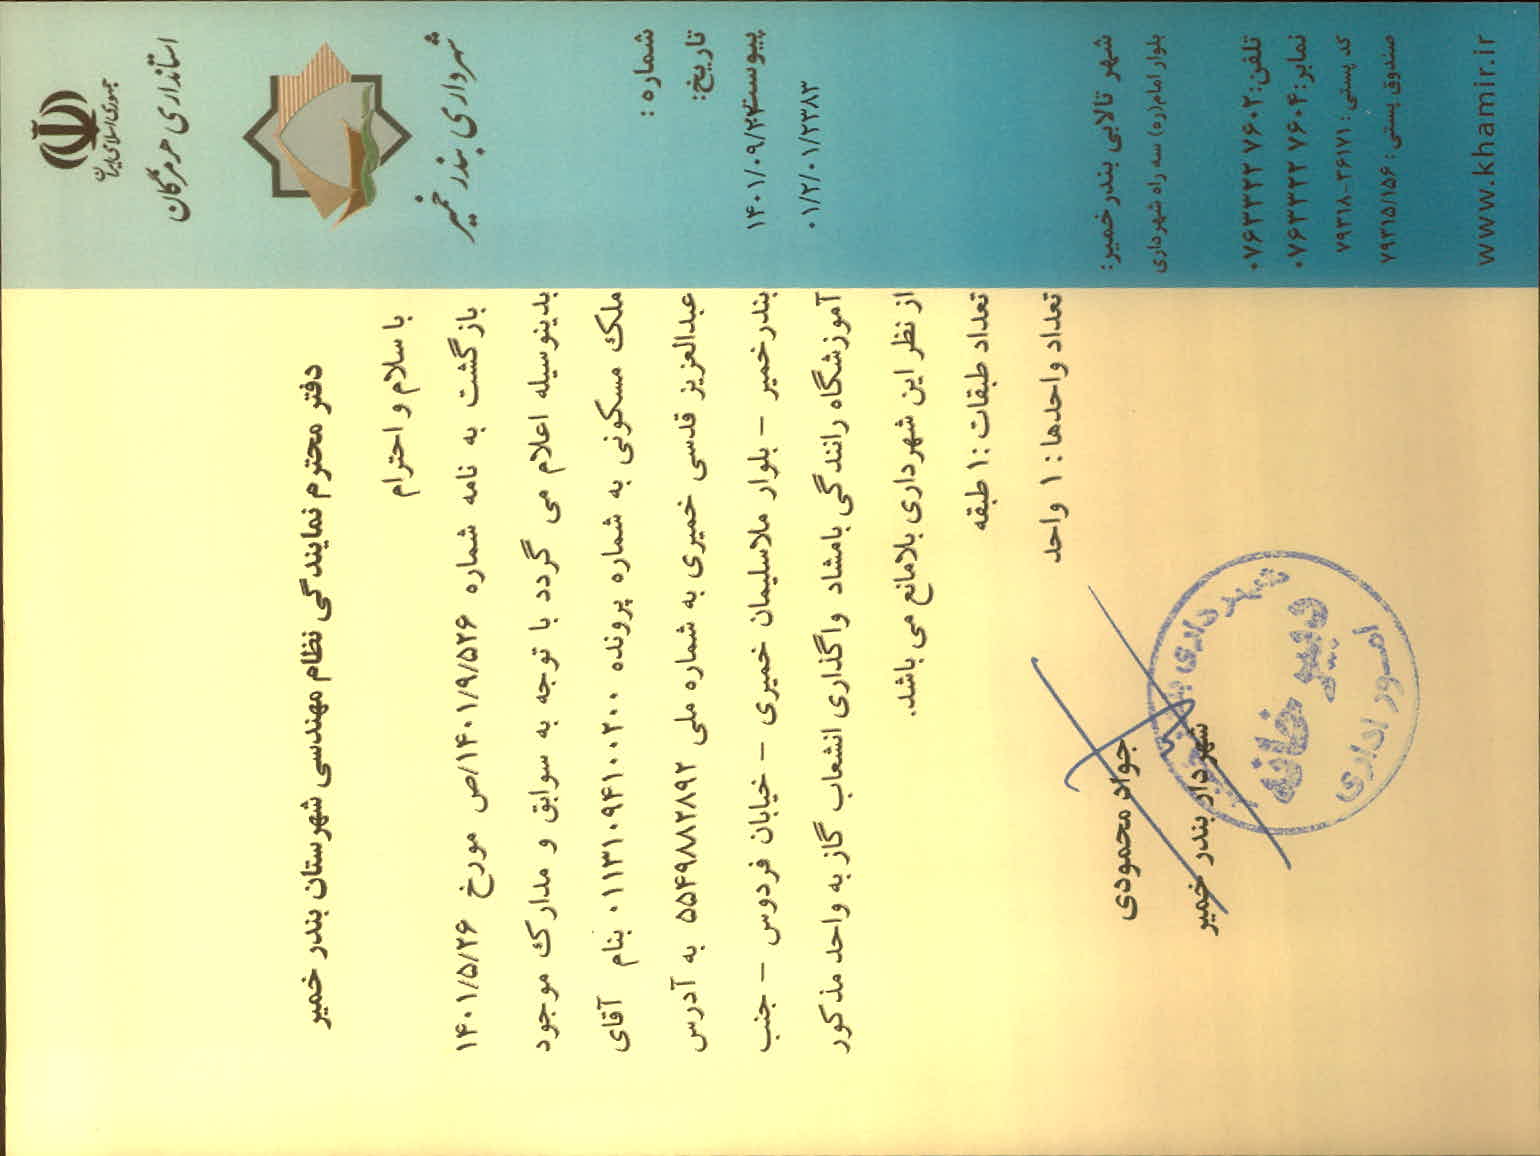 جمهوری اسلامی ایران
استانداری هرمزگان
شهرداری بندر خمیر
شماره :
تاریخ:
پیوست:
۱۴۰۱/۰۹/۲۳
۰۱/۲/۰۱/۲۳۸۳
دفتر محترم نمایندگی نظام مهندسی شهرستان بندر خمیر
با سلام و احترام
بازگشت به نامه شماره ۱۴۰۱/۹/۵۲۶/ص مورخ ۱۴۰۱/۵/۲۶
بدینوسیله اعلام می گردد با توجه به سوابق و مدارک موجود
ملک مسکونی به شماره پرونده ۰۱۱۳۱۰۹۴۱۰۰۲۰۰ بنام آقای
عبدالعزیز قدسی خمیری به شماره ملی ۵۵۴۹۸۸۲۸۹۲ به آدرس
بندرخمیر – بلوار ملاسلیمان خمیری – خیابان فردوس – جنب
آموزشگاه رانندگی بامشاد واگذاری انشعاب گاز به واحد مذکور
از نظر این شهرداری بلامانع می باشد.
تعداد طبقات :۱ طبقه
تعداد واحدها : ۱ واحد
جواد محمودی
شهردار بندر خمیر
شهرداری بندر خمیر
دبیرخانه
امور اداری
شهر تالابی بندرخمیر:
بلوار امام(ره) سه راه شهرداری
تلفن:۰۷۶۳۳۲۲۷۶۰۲
نمابر:۰۷۶۳۳۲۲۷۶۰۴
کد پستی : ۷۹۳۱۸-۳۶۱۷۱
صندوق پستی : ۷۹۳۱۵/۱۵۶
www.khamir.ir